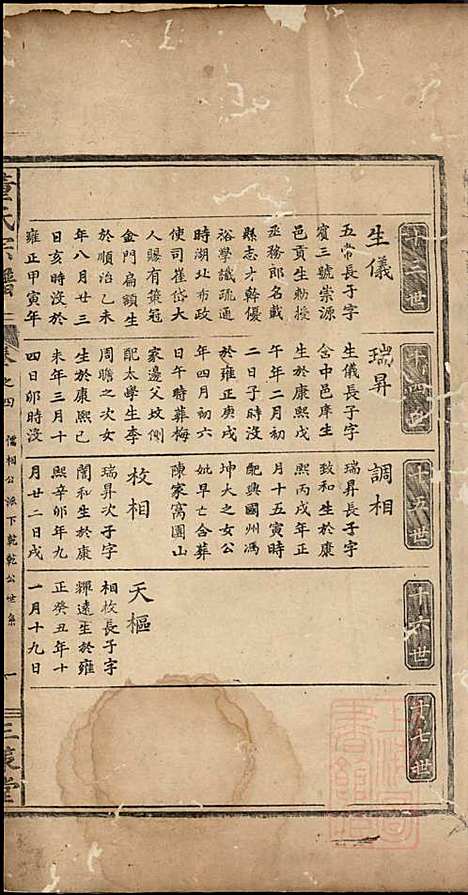 十三世
生儀
五常長子字
賓三號崇源
邑貢生勅授
丞務郎名載
縣志才幹優
裕學識疏通
時湖北布政
使司崔岱大
人賜有黌冠
金門扁額生
於順治乙未
年八月廿三
日亥時沒於
雍正甲寅年
十四世
瑞昇
生儀長子字
含中邑庠生
生於康熙戊
午年二月初
二日子時沒
於雍正庚戌
年四月初六
日午時葬梅
家邊父坟側
配太學生李
周瞻之次女
生於康熙己
未年三月十
四日卯時沒
十五世
調相
瑞昇長子字
致和生於康
熙丙戌年正
月十五寅時
配興國州馮
坤大之女公
妣早亡合葬
陳家窩園山
枚相
瑞昇次子字
誾和生於康
熙辛卯年九
月廿二日戌
十六世
天樞
相枚長子字
輝遠生於雍
正癸丑年十
一月十九日
十七世
董氏宗譜
卷之四
儒相公派下乾乾公世系
一
三策堂